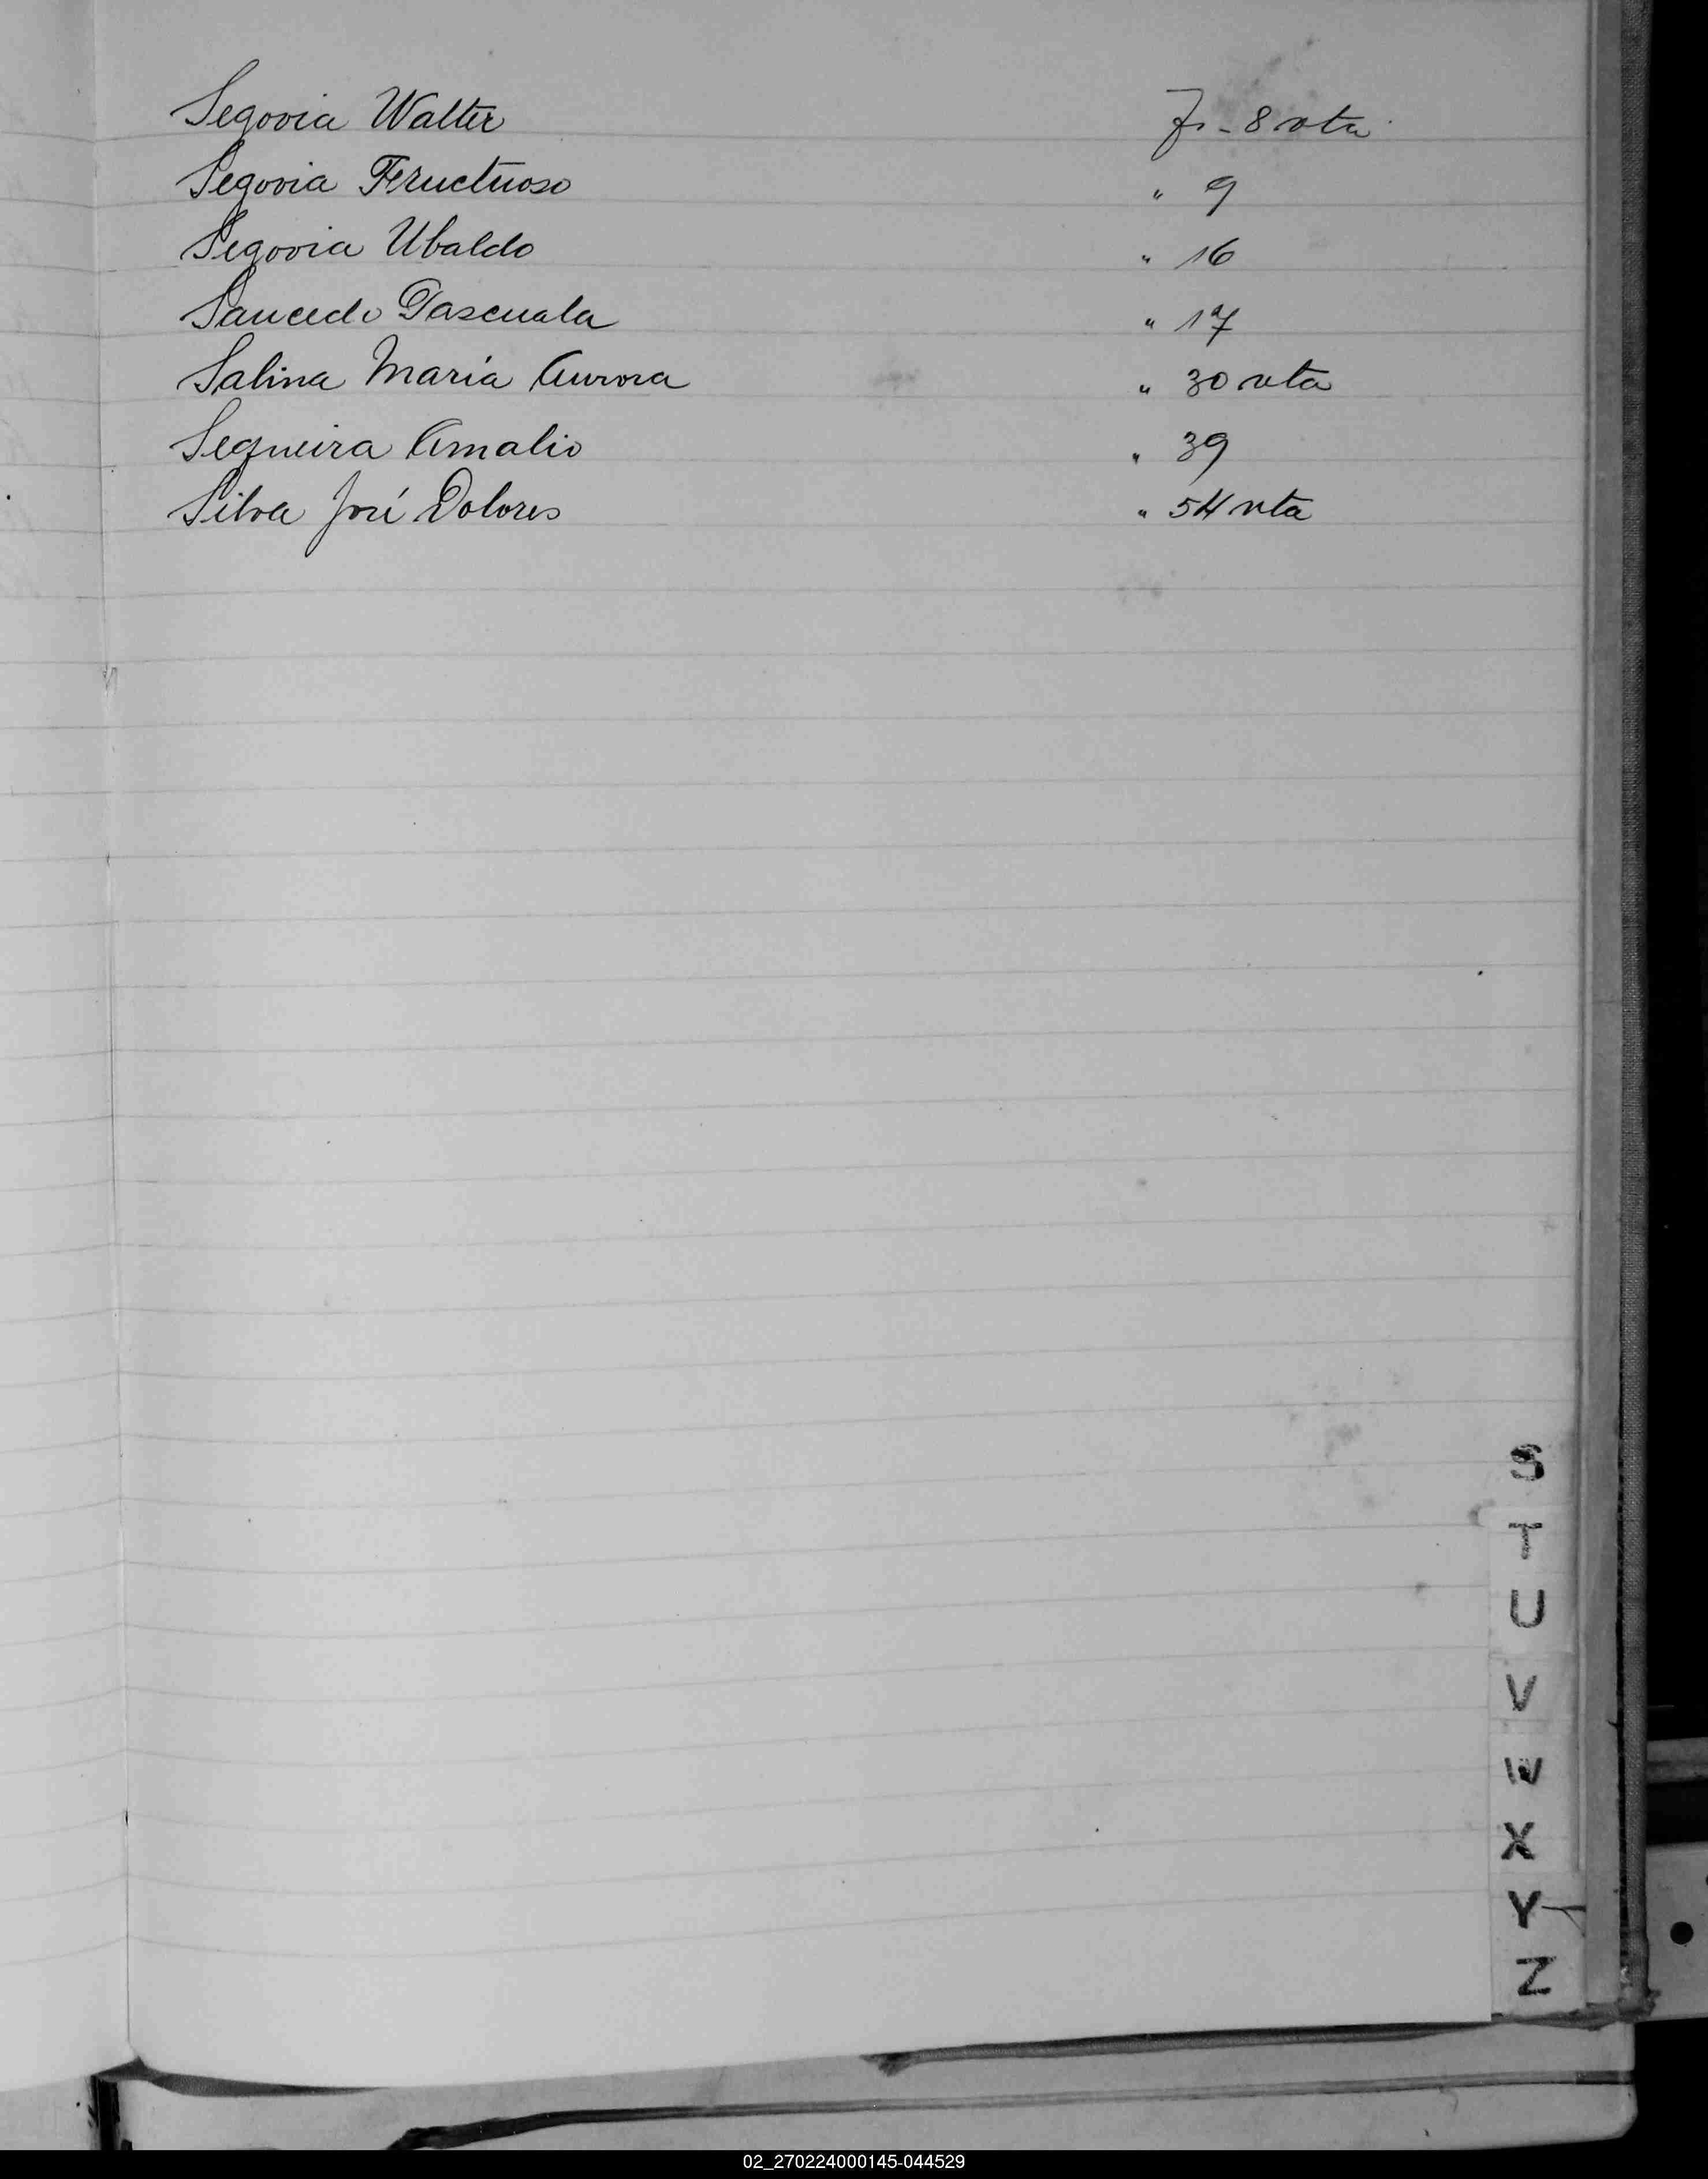 Segovia Walter Fs - 8 vta
Segovia Fructuoso " 9
Segovia Ubaldo " 16
Saucedo Pascuala " 17
Salina María Aurora " 30 vta
Sequeira Amalio " 39
Silva José Dolores " 54 vta
S
T
U
V
W
X
Y
Z
02_270224000145-044529